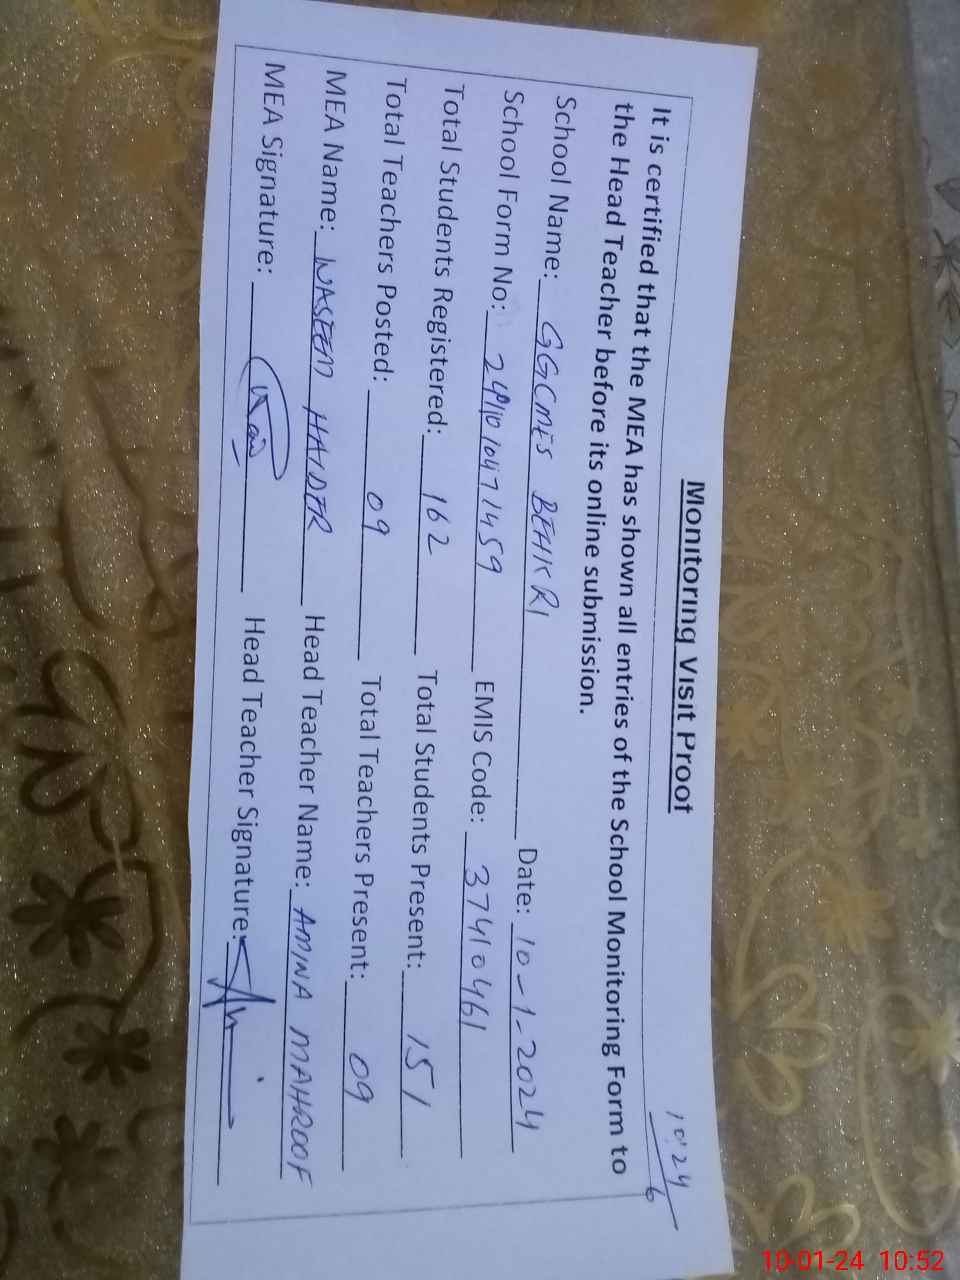 Monitoring Visit Proof
10:24
6
It is certified that the MEA has shown all entries of the School Monitoring Form to
the Head Teacher before its online submission.
School Name: GGCMES BEHKRI Date: 10-1-2024
School Form No: EMIS Code: 37410461
Total Students Registered: 162 Total Students Present: 151
Total Teachers Posted: 09 Total Teachers Present: 09
MEA Name: NASEEM HAIDER Head Teacher Name: AMINA MAHROOF
MEA Signature: Head Teacher Signature:
10-01-24 10:52